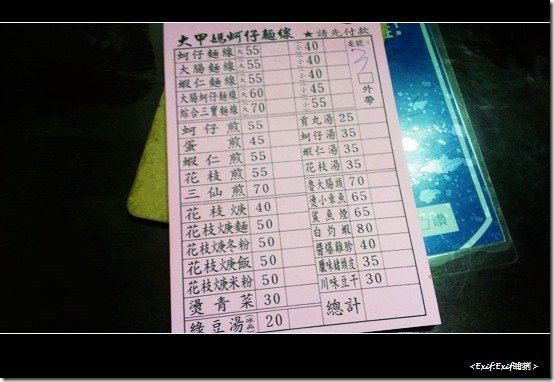 大甲媽蚵仔麵線 ★請先付款
蚵仔麵線 大 55 小 40
大腸麵線 大 55 小 40
蝦仁麵線 大 55 小 40
大腸蚵仔麵線 大 60 小 45
綜合三寶麵線 大 70 小 55
桌號:
外帶
蚵仔煎 55
蛋煎 45
蝦仁煎 55
花枝煎 55
三仙煎 70
花枝焿 40
花枝焿麵 50
花枝焿冬粉 50
花枝焿飯 50
花枝焿米粉 50
燙青菜 30
綠豆湯 20
貢丸湯 25
蚵仔湯 35
蝦仁湯 35
花枝湯 35
魯大腸頭 70
燙小章魚 65
鯊魚煙 65
白灼蝦 80
醬爆雞胗 40
鹽味豬頭皮 35
川味豆干 30
總計
讚